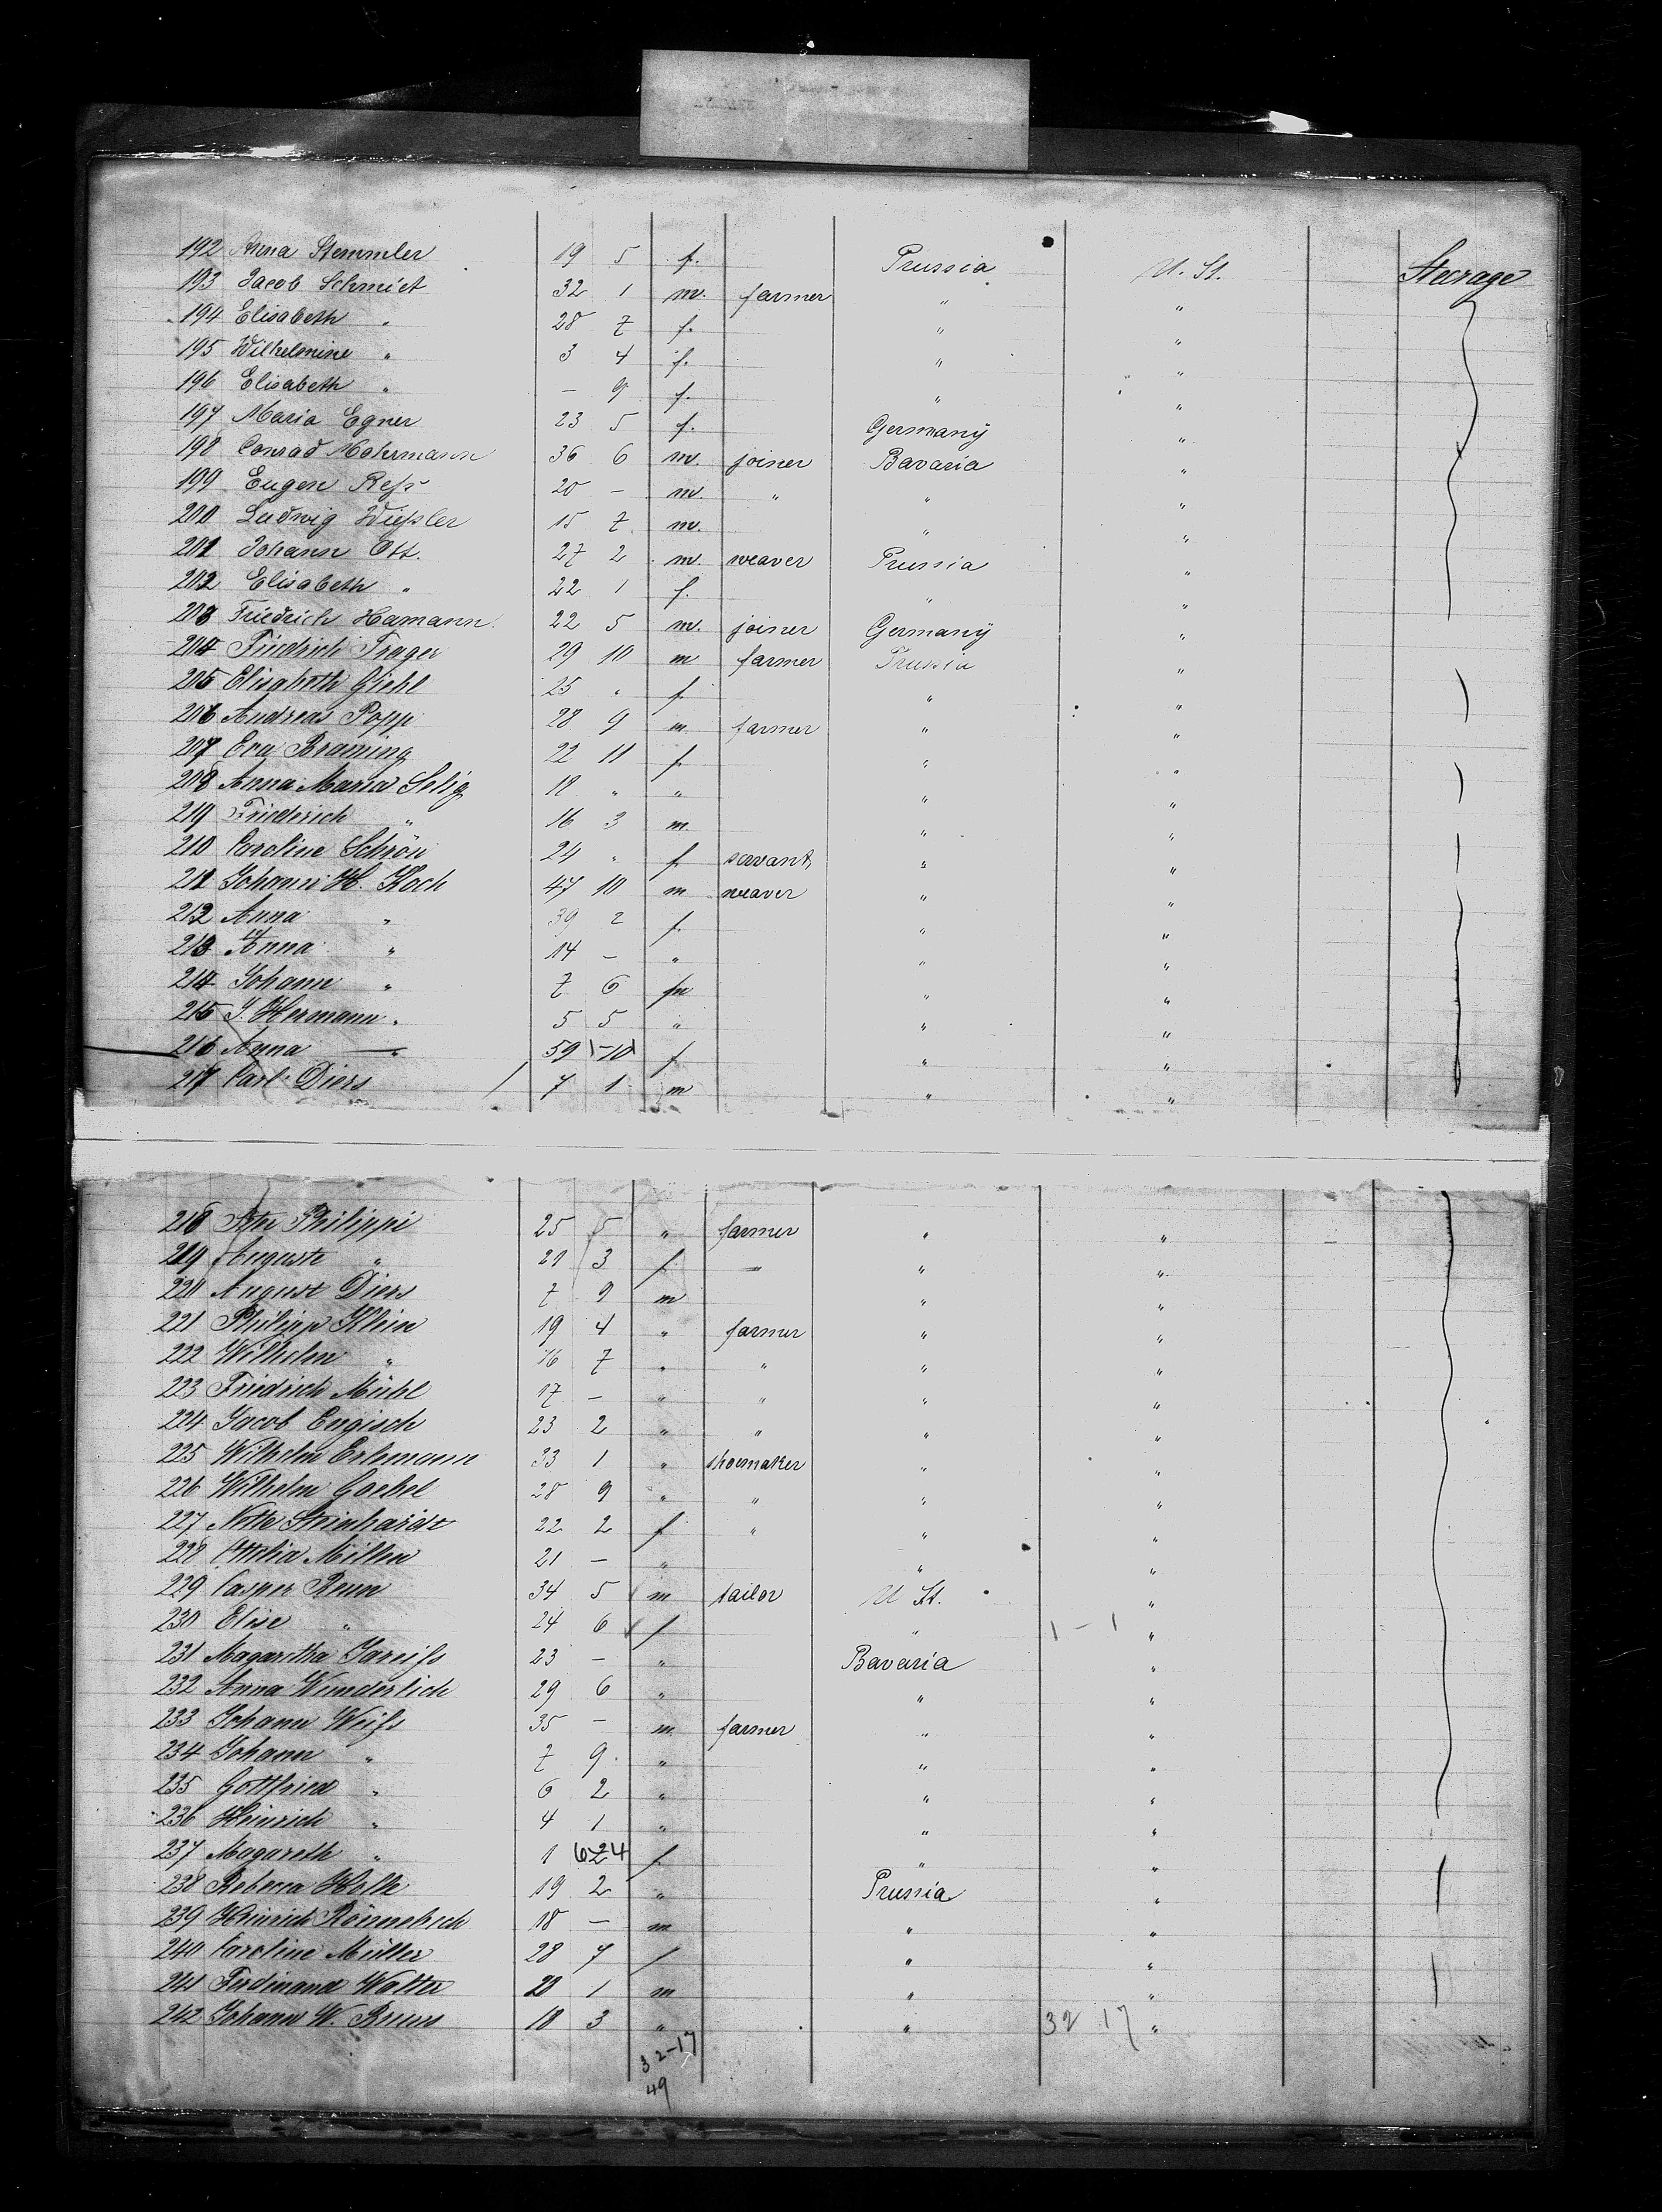 192 Anna Stemmler 19 5 f. Prussia U. St. Steerage
193 Jacob Schmidt 32 1 m. farmer " "
194 Elisabeth " 28 7 f. " "
195 Wilhelmine " 3 4 f. " "
196 Elisabeth " – 9 f. " "
197 Maria Egner 23 5 f. Germany "
198 Conrad Mohrmann 36 6 m. joiner Bavaria "
199 Eugen Reſs 20 – m. " " "
200 Ludwig Wieſsler 15 7 m. " "
201 Johann Ott. 27 2 m. weaver Prussia "
202 Elisabeth " 22 1 f. " "
203 Friedrich Hamann 22 5 m. joiner Germany "
204 Friedrich Trager 29 10 m farmer Prussia "
205 Elisabeth Giehl 25 " f " "
206 Andreas Popp 28 9 m farmer " "
207 Eva Braning 22 11 f " "
208 Anna Maria Selig 18 " " " "
219 Friederich " 16 3 m. " "
210 Caroline Schrön 24 " f servant " "
211 Johann H. Koch 47 10 m weaver " "
212 Anna " 39 2 f " "
213 Anna " 14 – " " "
214 Johann " 7 6 m " "
215 J. Hermann " 5 5 " " "
216 Anna " 59 10 f " "
217 Carl Diers 7 1 m " "
218 Philippi 25 5 " farmer " "
219 Auguste " 21 3 f " " "
220 August Diers 7 9 m " "
221 Philipp Klein 19 4 " farmer " "
222 Wilhelm " 16 7 " " " "
223 Friedrich Mühl 17 – " " " "
224 Jacob Engisch 23 2 " " " "
225 Wilhelm Erlemann 33 1 " shoemaker " "
226 Wilhelm Goebel 28 9 " " " "
227 Steinhardt 22 2 f " " "
228 Ottilia 21 – " " "
229 Casper Renn 34 5 m tailor U St. "
230 Elise " 24 6 f " 1 – 1 "
231 Magaretha Jareiſs 23 – " Bavaria "
232 Anna Wunderlich 29 6 " " "
233 Johann Weiſs 35 – m. farmer " "
234 Johann " 7 9 " " "
235 Gottfried " 6 2 " " "
236 Heinrich " 4 1 " " "
237 Magareth " 1 f " "
238 Rebecca 19 2 " Prussia "
239 Heinrich 18 – m " "
240 Caroline Müller 28 7 f " "
241 Ferdinand Walter 20 1 m " "
242 Johann W. Bruns 18 3 " " 32 17 "
32–17
49